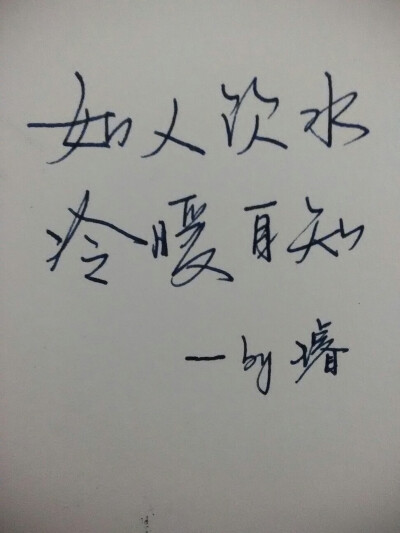 如人饮水
冷暖自知
—by 璿